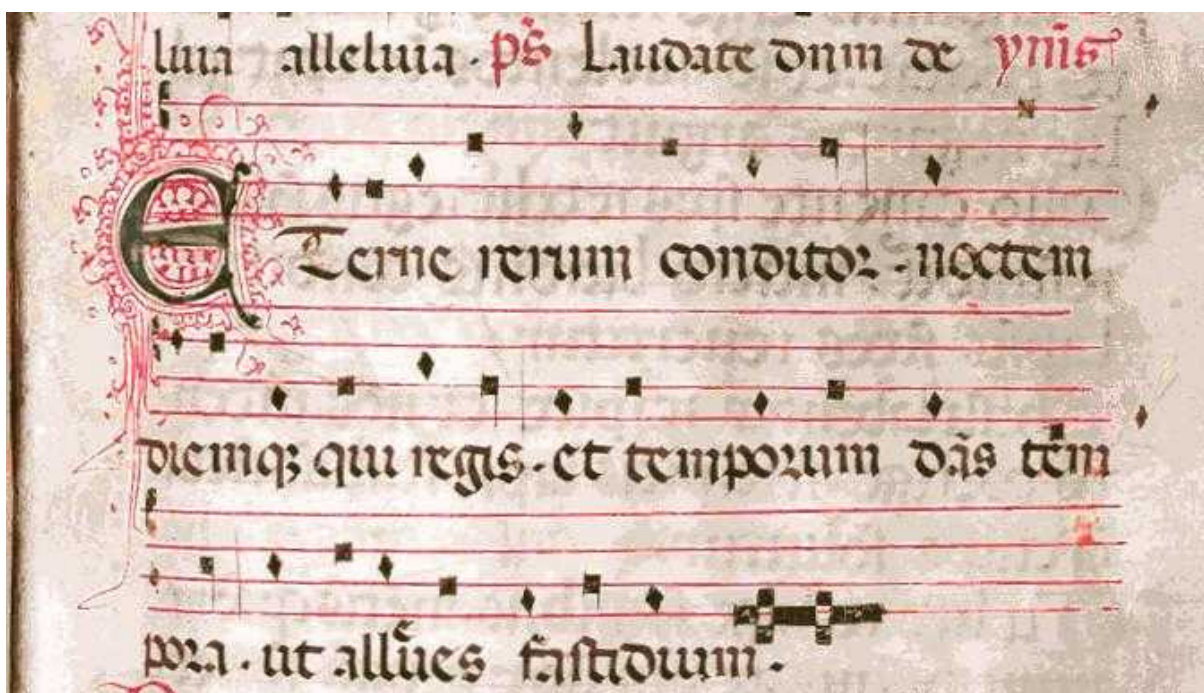 luia alleluia. ps̃ Laudate dnm de ynis
ETerne rerum conditor. noctem
diemq; qui regis. et temporum das tem
pora. ut alleues fastidium.